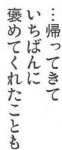 …帰ってきて
いちばんに
褒めてくれたことも